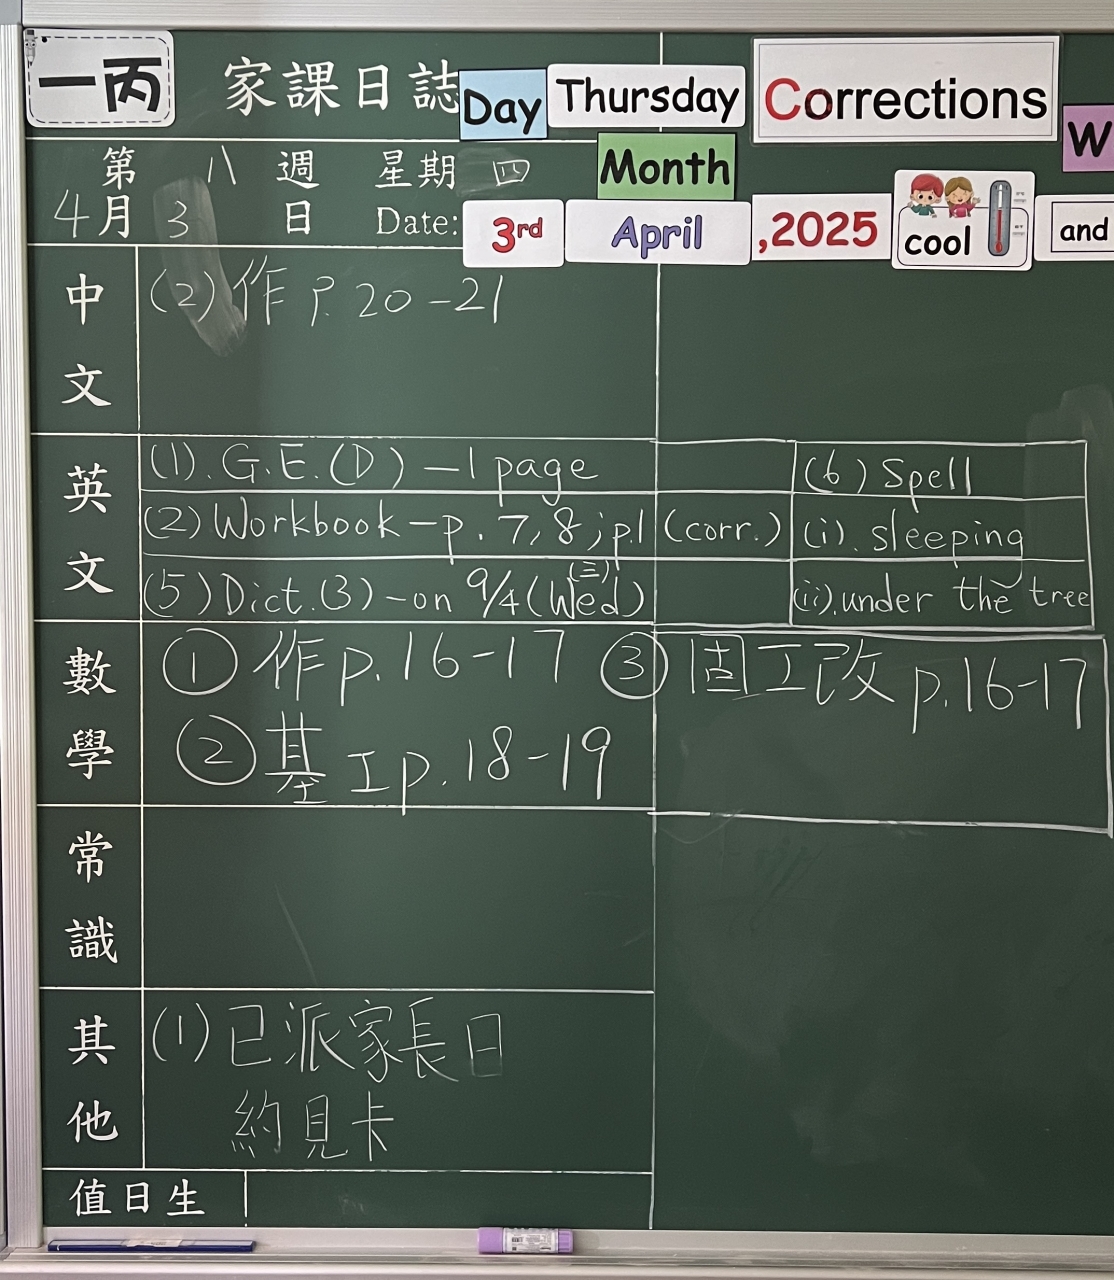 一丙 家課日誌 Day Thursday Corrections W
第八週 星期四 Month
4月3日 Date: 3rd April ,2025 cool and
中文 (2)作P.20-21
英文 (1).G.E.(D)-1 page (6) Spell
(2)Workbook-p.7,8;p.1 (corr.) (i). sleeping
(5)Dict.(3)-on 9/4(Wed) (三) (ii).under the tree
數學 ①作p.16-17 ③固工改 p.16-17
②基工p.18-19
常識
其他 (1)已派家長日
約見卡
值日生